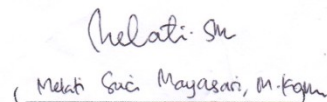 Melati. SM
( Melati Suci Mayasari, M.